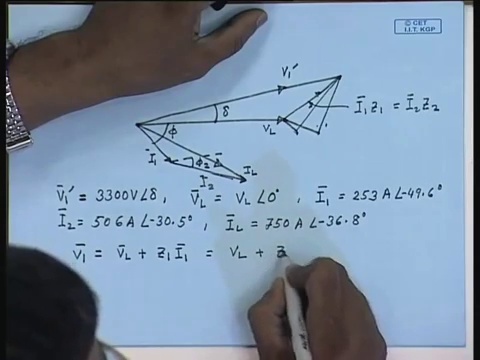 © CET
I.I.T. KGP
V₁'
δ
V_L
Ī₁Z₁ = Ī₂Z₂
Φ
Ī₁
Ī₂
I_L
V̄₁' = 3300V∠δ, V̄_L = V_L ∠0°, Ī₁ = 253 A ∠-49.6°
Ī₂ = 506 A ∠-30.5°, Ī_L = 750 A ∠-36.8°
V̄₁ = V̄_L + Z₁Ī₁ = V_L + Z